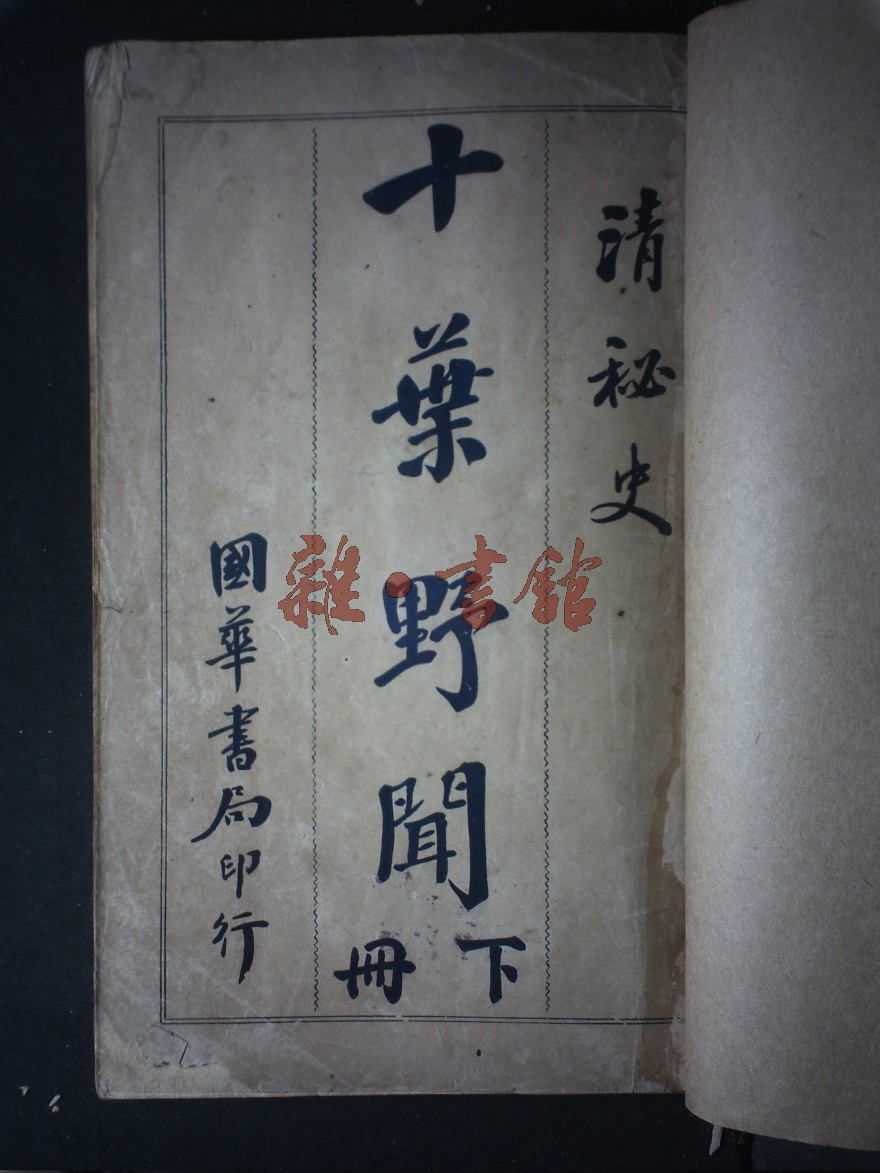 清秘史
十葉野聞
下冊
國華書局印行
雜·書館